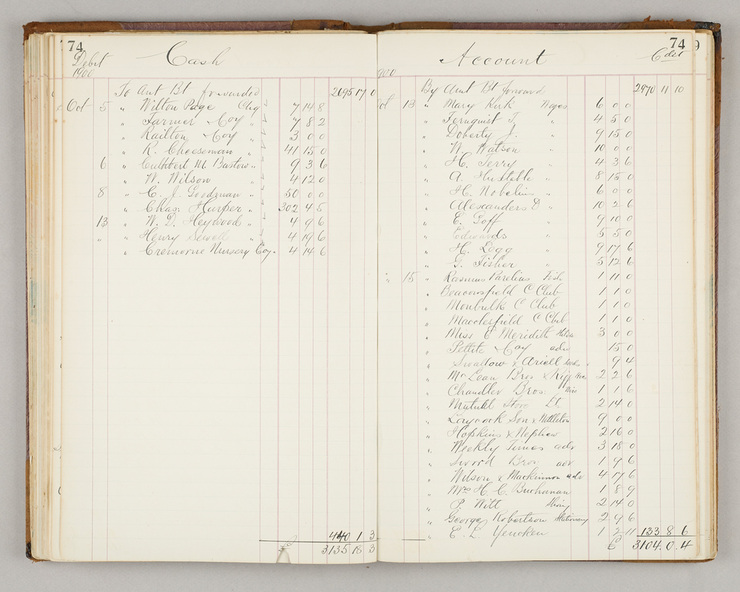 74
Debit
1900
Cash
To Amt Bt forwarded 2695 17 0
Oct 5 " Wilton Page Chq 7 14 8
" Farmer & Coy " 7 8 2
" Railton & Coy " 3 0 0
" R. Cheeseman " 41 15 0
6 " Cuthbert M Barlow " 9 3 6
" W. Wilson " 4 12 0
8 " C. J. Goodman " 50 0 0
" Chas Harper " 302 4 5
13 " W. G. Heywood " 4 9 6
" " Henry " 4 19 6
" Cremorne Nursery Coy. 4 14 6
440 1 3
3135 18 3
Account
74
Cdit
1900
By Amt Bt forward 2970 11 10
Oct 13 " Mary Kirk Wages 6 0 0
" Fernquist T. " 4 5 0
" Doherty J. " 9 15 0
" W. Watson " 10 0 0
" H. Terry " 4 3 6
" A. " 8 15 0
" H. Nobelius " 6 0 0
" Alexanders E " 10 2 6
" E. Goff " 9 10 0
" Edwards " 5 5 0
" H. Legg " 9 17 6
" G. Fisher " 5 12 6
" 15 " Rasmus 1 11 0
" Beaconsfield C Club 1 1 0
" Monbulk C. Club 1 1 0
" Macclesfield C. Club 1 1 0
" Miss E Meredith 3 0 0
" Pettit & Coy adv 15 0
" Swallow & Ariell 9 4
" McLean Bros & Rigg 2 2 6
" Chandler Bros 1 1 6
" Mutual Store Ld 2 14 0
" Son & Nettleton 9 0 0
" Hopkins & Nephew 2 16 0
" Weekly Times adv 3 18 0
" Bros adv 1 9 6
" Wilson & Mackinnon adv 4 17 6
" Mrs H. C. Buchanan 1 8 9
" P. Witt 2 14 0
" George Robertson Stationery 2 9 6
" E. L. Yencken 1 2 11 133 8 6
£ 3104 0 4